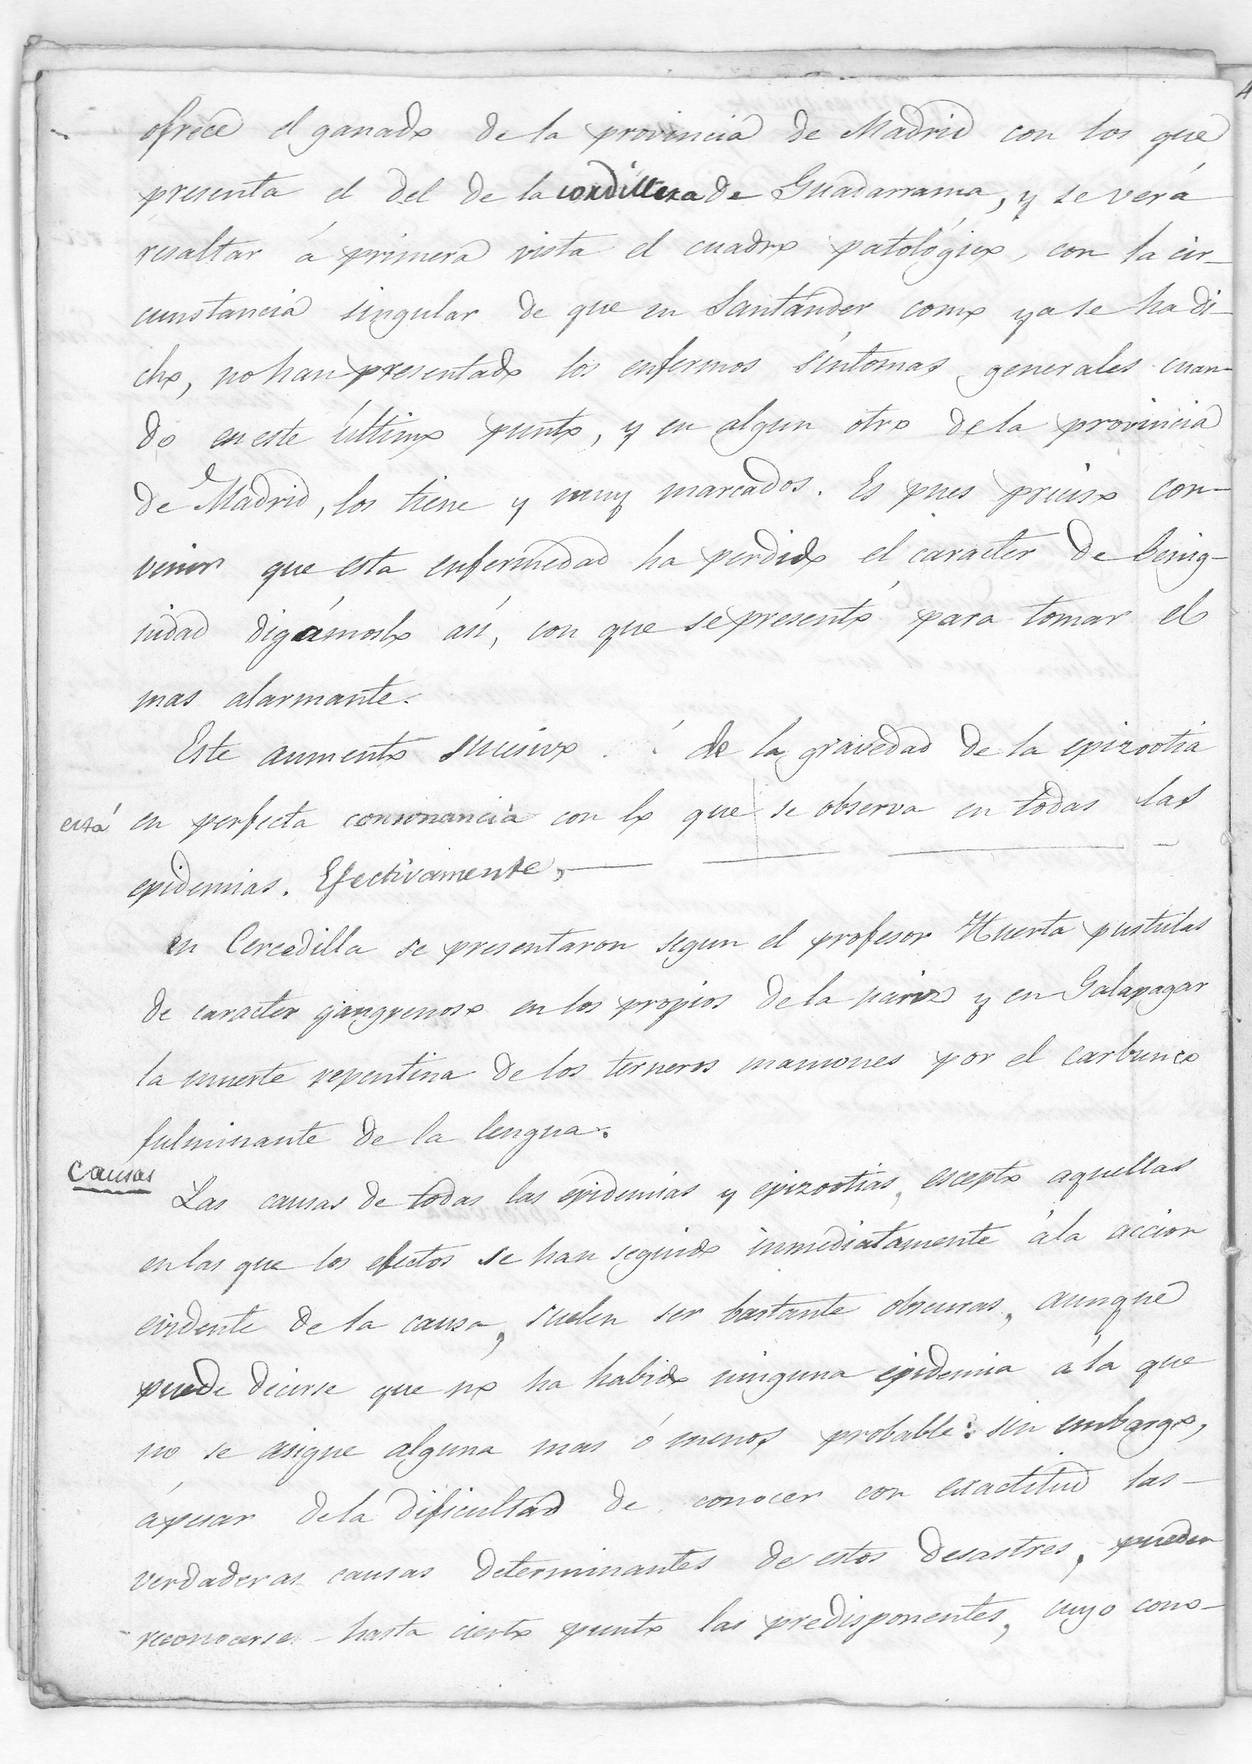 ofrece el ganado de la provincia de Madrid con los que
presenta el del de la cordillera de Guadarrama, y se verá
resaltar á primera vista el cuadro patológico, con la cir-
cunstancia singular de que en Santander como ya se ha di-
cho, no han presentado los enfermos síntomas generales cuan-
do en este último punto, y en algun otro de la provincia
de Madrid, los tiene y muy marcados. Es pues preciso con-
venir que esta enfermedad ha perdido el caracter de benig-
nidad digámoslo así, con que se presentó para tomar el
mas alarmante.
Este aumento sucesivo de la gravedad de la epizootia
está en perfecta consonancia con lo que se observa en todas las
epidemias. Efectivamente,
en Cercedilla se presentaron segun el profesor Huerta pustulas
de caracter gangrenoso en los propios de la y en Galapagar
la muerte repentina de los terneros mamones por el carbunco
fulminante de la lengua.
Causas
Las causas de todas las epidemias y epizootias, escepto aquellas
en las que los efectos se han seguido inmediatamente á la accion
evidente de la causa, suelen ser bastante obscuras, aunque
puede decirse que no ha habido ninguna epidemia á la que
no se asigne alguna mas ó menos probable: sin embargo,
ápesar de la dificultad de conocer con exactitud las-
verdaderas causas determinantes de estos desastres, pueden
reconocerse hasta cierto punto las predisponentes, cuyo cono-
4